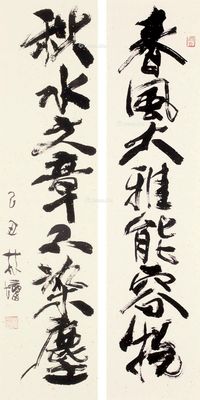 春風大雅能容物
秋水文章不染塵
己丑 林墉